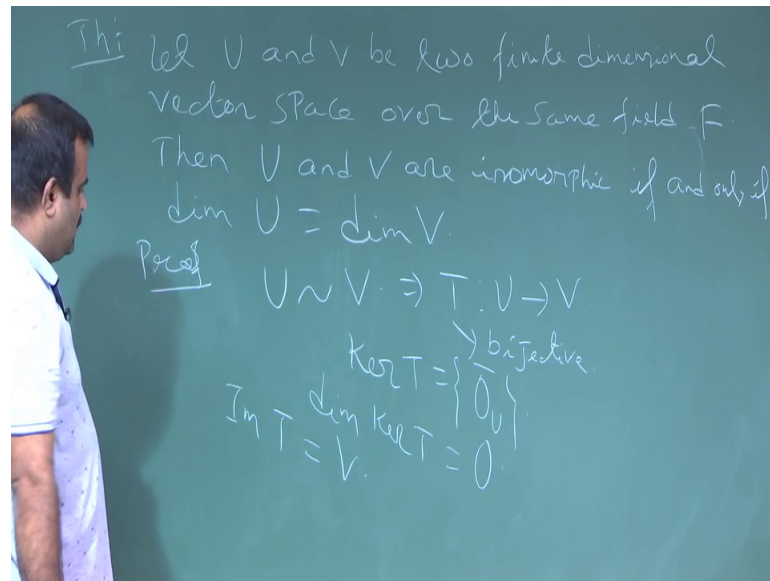 Th: Let U and V be two finite dimensional
vector space over the same field F.
Then U and V are isomorphic if and only if
dim U = dim V.
Proof
U ~ V. ⇒ T: U → V
↘ bijective.
Ker T = {0̄_U}
Im T = V.
dim Ker T = 0.